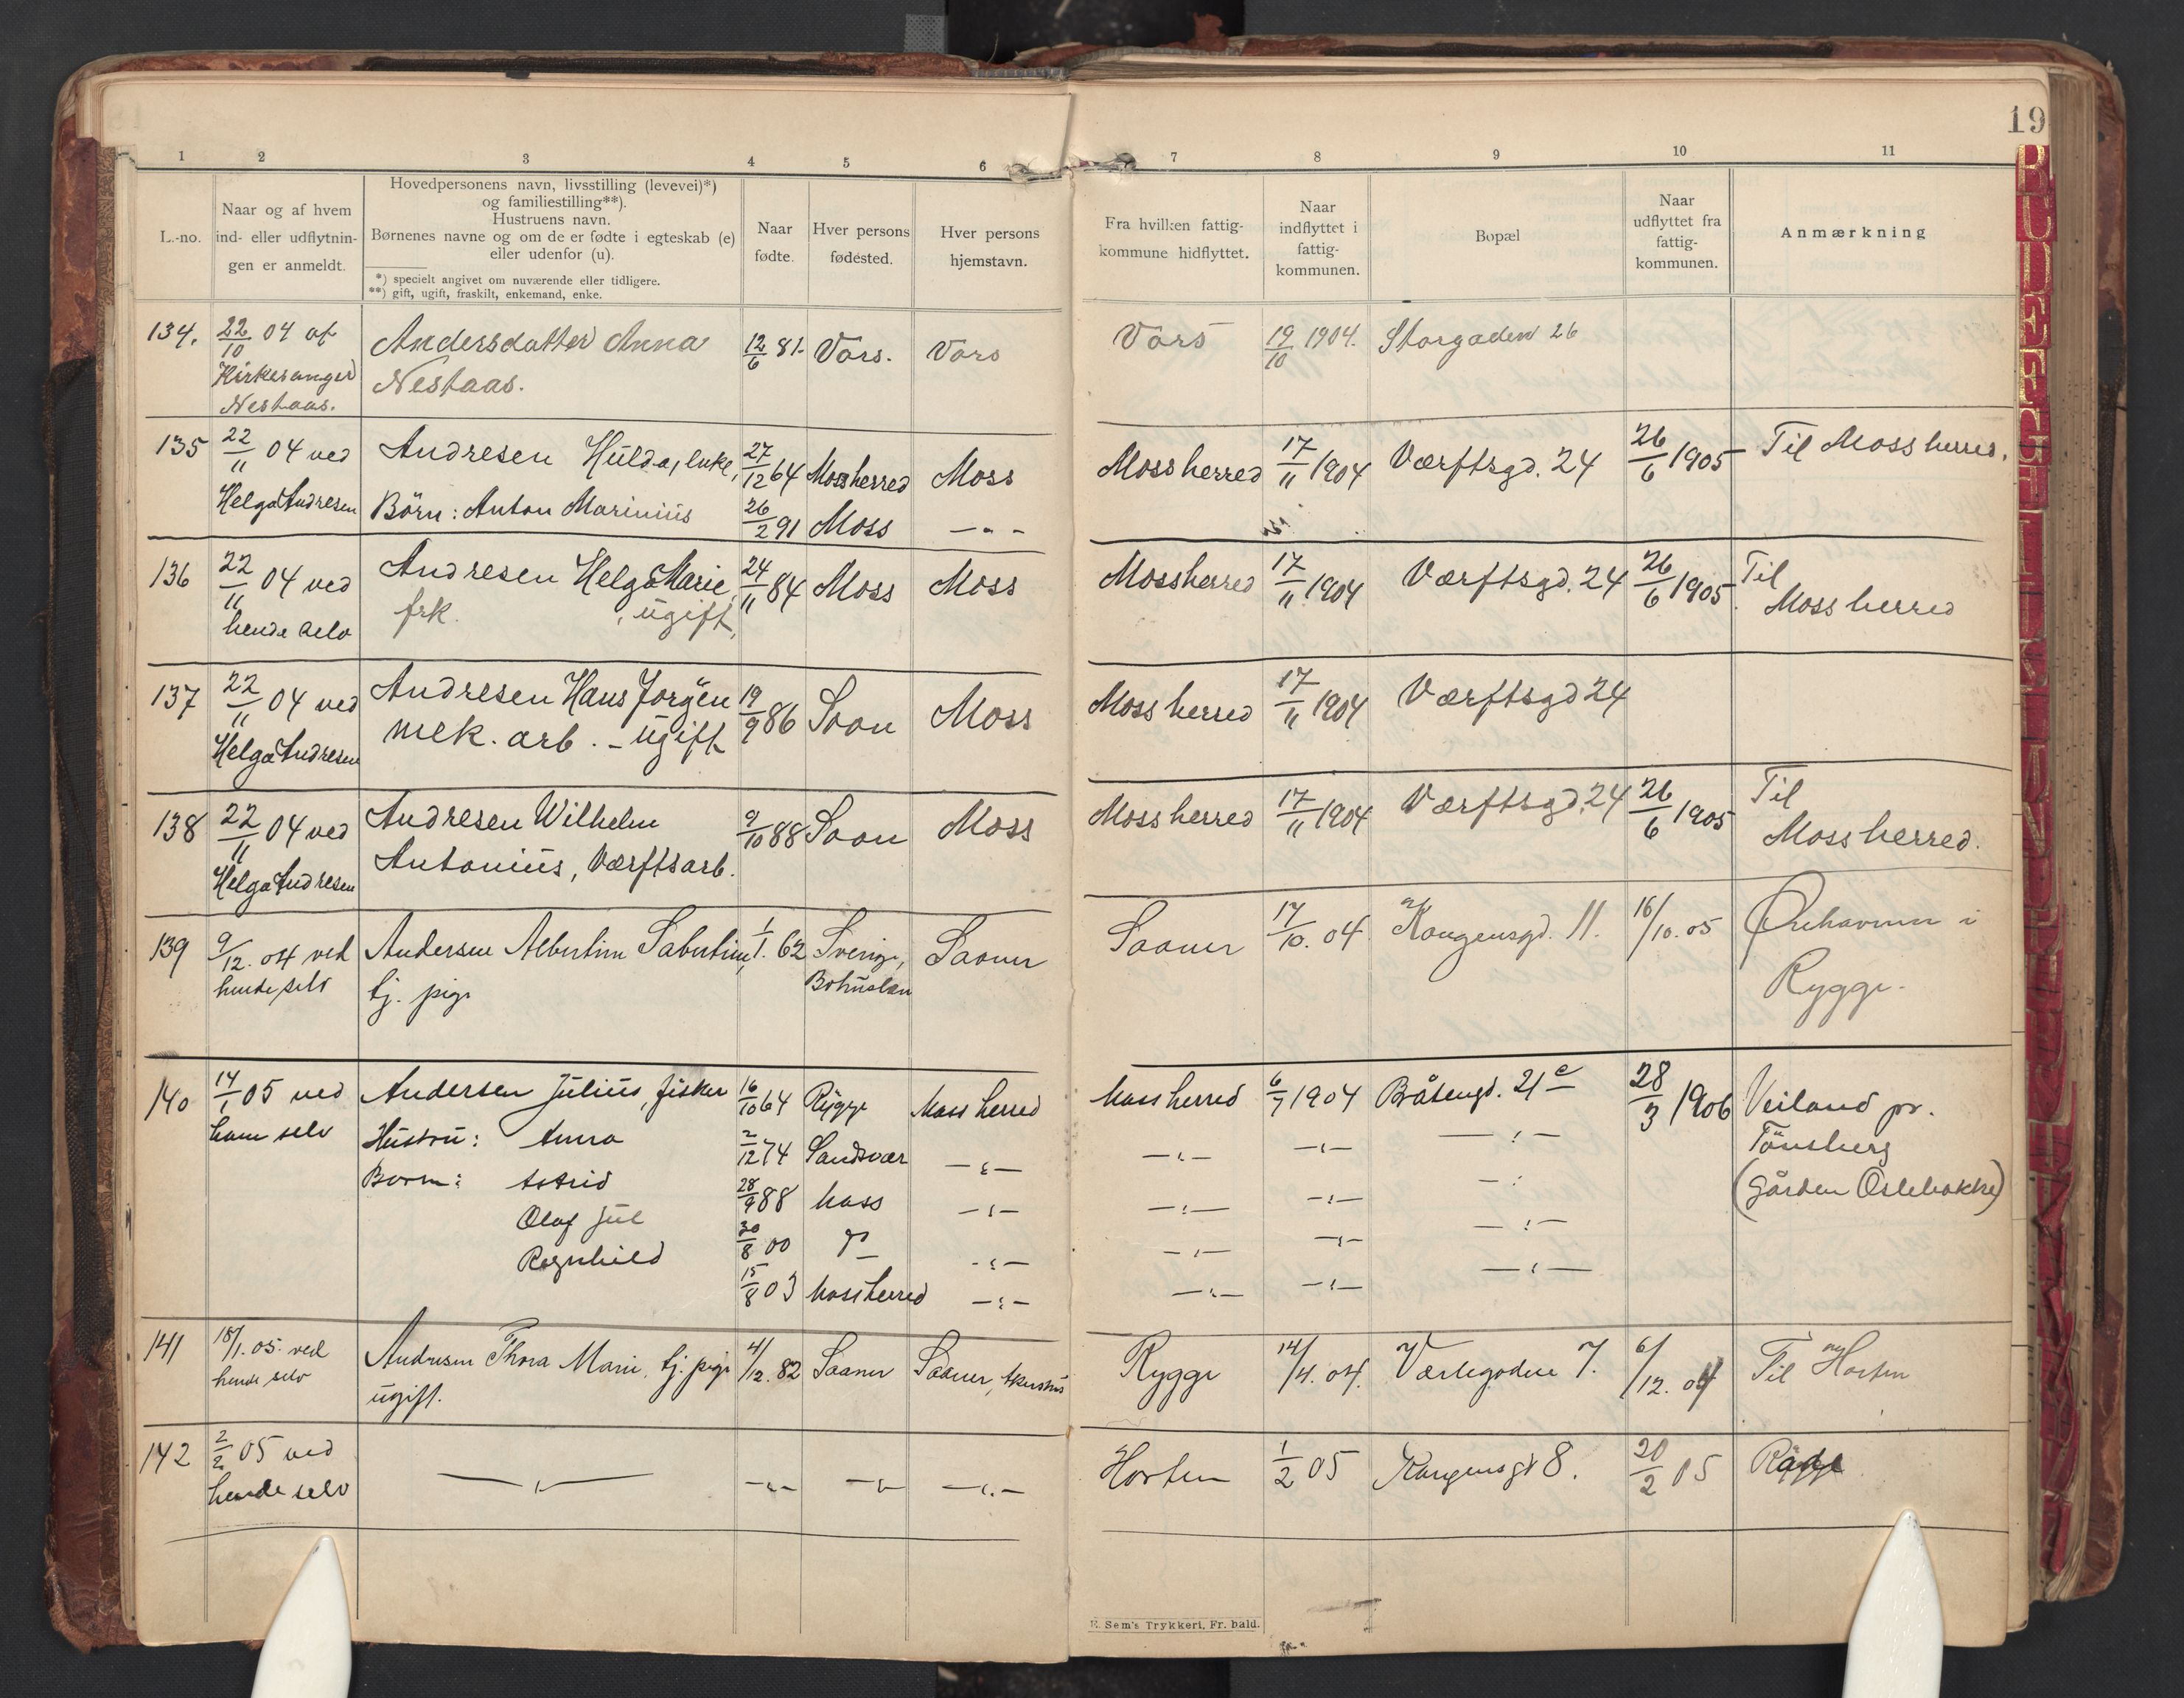 19
1 2 3 4 5 6 7 8 9 10 11
L.-no.
Naar og af hvem
ind- eller udflytnin-
gen er anmeldt.
Hovedpersonens navn, livsstilling (levevei)*)
og familiestilling**).
Hustruens navn.
Børnenes navne og om de er fødte i egteskab (e)
eller udenfor (u).
*) specielt angivet om nuværende eller tidligere.
**) gift, ugift, fraskilt, enkemand, enke.
Naar
fødte.
Hver persons
fødested.
Hver persons
hjemstavn.
Fra hvilken fattig-
kommune hidflyttet.
Naar
indflyttet i
fattig-
kommunen.
Bopæl
Naar
udflyttet fra
fattig-
kommunen.
Anmærkning
134. 22/10 04 af Andersdatter Anna 12/6 81. Vors. Vors Vors 19/10 1904. Storgaden 26
Kirkesanger Nestaas.
Nestaas.
135 22/11 04 ved Andresen Hulda, enke, 27/12 64 Mossherred Moss Moss herred 17/11 1904 Værftsgd. 24 26/6 1905 Til Moss herred.
Helga Andresen Børn: Anton Marinius 26/2 91 Moss — " —
136 22/11 04 ved Andresen Helga Marie, 24/11 84 Moss Moss Mossherred 17/11 1904 Værftsgd. 24 26/6 1905. Til
hende selv frk. , ugift, Moss herred
137 22/11 04 ved Andresen Hans Jørgen 19/9 86 Soon Moss Moss herred 17/11 1904 Værftsgd 24
Helga Andresen mek. arb. - ugift
138 22/11 04 ved Andresen Wilhelm 9/10 88 Soon Moss Moss herred 17/11 1904 Værftsgd. 24 26/6 1905 Til
Helga Andresen Antonius, Værftsarb. Moss herred.
139 9/12. 04 ved Andersen Albertine Sabertine, 1/1. 62 Sverige, Saaner Saaner 17/10. 04. Kongensgd. 11. 16/10. 05 Ørehavnen i
hende selv tj. pige Bohuslæn Rygge.
140 14/1 05 ved Andersen Julius, fisker 16/10 64 Rygge Moss herred Moss herred 6/7 1904 Bråtengd. 21 e 28/3 1906 Veiland pr.
ham selv Hustru: Anna 2/12 74 Sandsvær — " — — " — — " — — " — Tønsberg
Børn: Astrid 28/9 88 Moss — " — — " — — " — — " — (gården Oslebakke)
Olaf Jul 30/8 00 do — " — — " — — " — — " —
Ragnhild 15/8 03 Moss herred — " — — " — — " — — " —
141 18/1. 05. ved Andresen Thora Marie, tj. pige 4/12. 82 Saaner Saaner, Akershus Rygge 14/4. 04. Værlegaden 7. 6/12. 04 Til Horten
hende selv ugift.
142 2/2 05 ved — " — — " — — " — — " — Horten 1/2 05 Kongensgd 8. 20/2 05 Råde
hende selv
E. Sem's Trykkeri, Fr. hald.